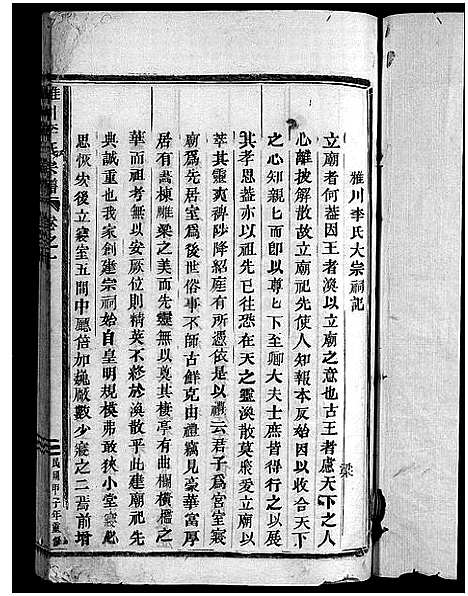 雅川李氏大宗祠記
梁
立廟者何蓋因王者渙以立廟之意也古王者慮天下之人
心離披解散故立廟祀先使人知報本反始因以收合天下
之心知親匕而即以尊匕下至卿大夫士庶皆得行之以展
其孝思蓋亦以祖先已往恐在天之靈渙散莫屬爰立廟以
萃其靈爽俾陟降紹庭有所憑依是以禮云君子爲宮室宗
廟爲先居室爲後世俗事不師古鮮克由禮竊見豪華富厚
居有畫棟雕梁之美而先靈無以奠其棲亭有曲欄橫檻之
華而祖考無以安厥位則精英不終於渙散乎此建廟祀先
典誠重也我家創建宗祠始自皇明規模弗敢狹小堂寢必
思恢宏後立寢室五間中廳倍加巍厰數少寢之二焉前堦
雅川李氏宗譜 卷之
民國甲子年重修